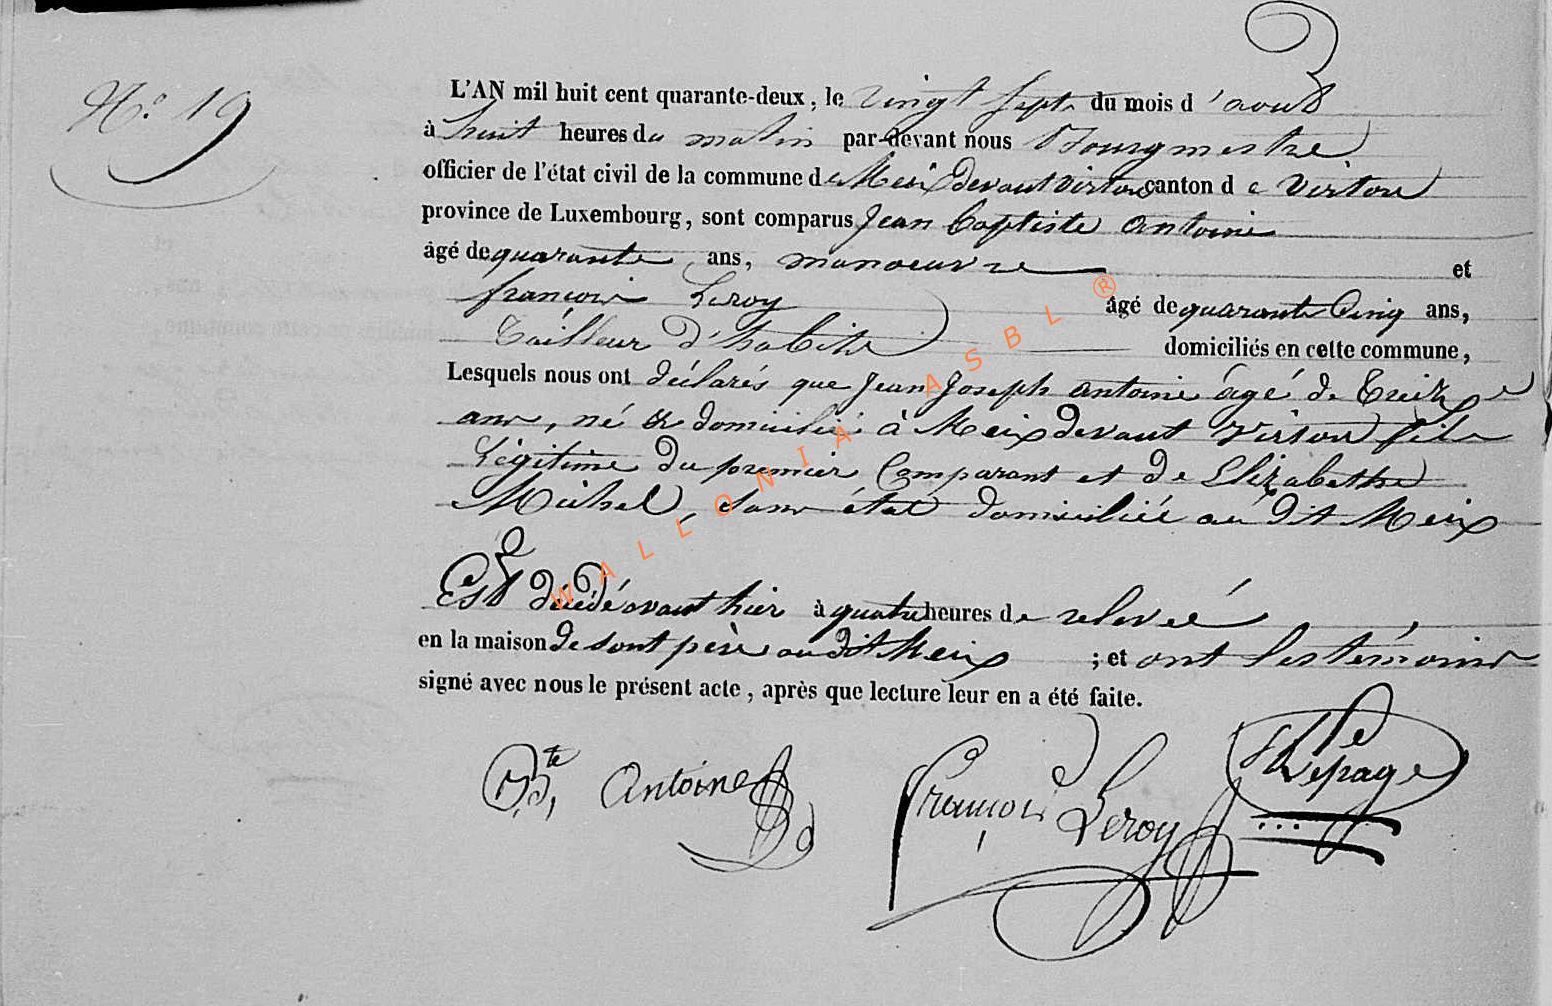 N.° 19
L'AN mil huit cent quarante-deux, le vingt sept du mois d'aout
à huit heures du matin par-devant nous Bourgmestre
officier de l'état civil de la commune de Meix devant virton canton de virton
province de Luxembourg, sont comparus Jean baptiste antoine
âgé de quarante ans, manoeuvre et
françois Leroy âgé de quarante Cinq ans,
Tailleur d'habits domiciliés en cette commune,
Lesquels nous ont déclarés que Jean Joseph antoine âgé de Treize
ans, né & domicilié à Meix devant Virton fils
Légitime du premier Comparant et de Elizabethe
Michel, sans état domiciliée au dit Meix
Est décédé avant hier à quatre heures de relevée
en la maison de sont père au dit Meix ; et ont les témoins
signé avec nous le présent acte, après que lecture leur en a été faite.
Bte Antoine
François Leroy
Lepage
WALLONIA ASBL ®